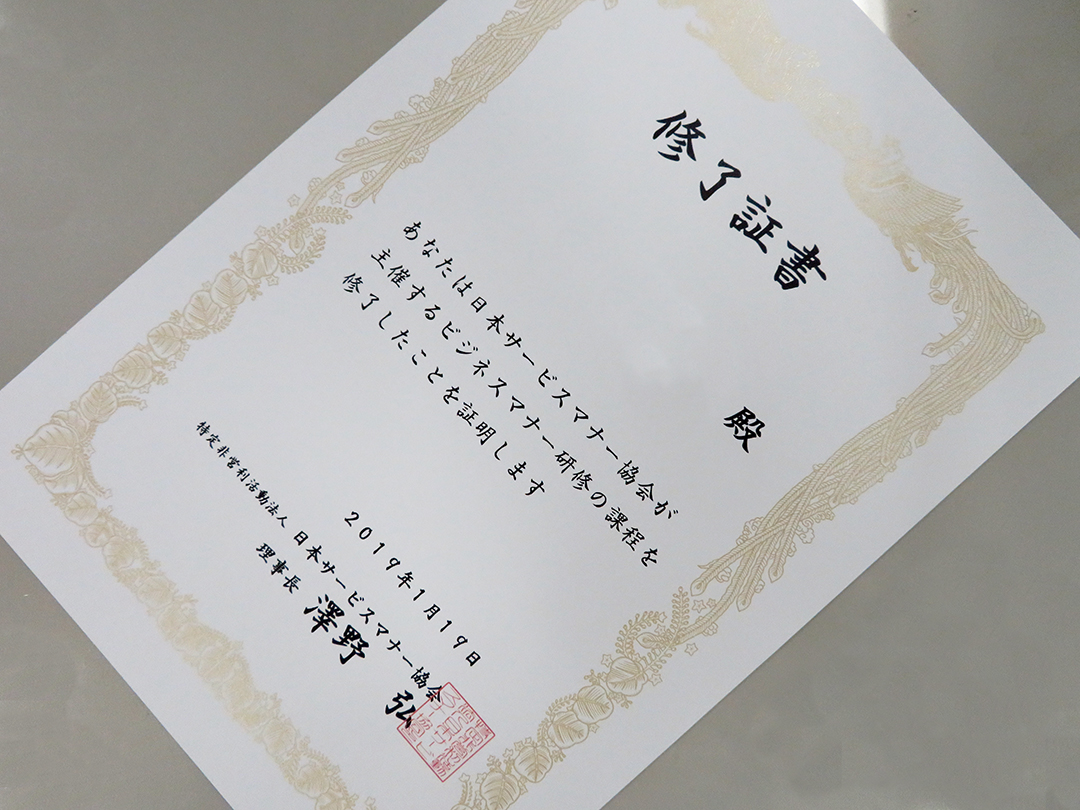 修了証書
殿
あなたは日本サービスマナー協会が
主催するビジネスマナー研修の課程を
修了したことを証明します
2019年1月19日
特定非営利活動法人 日本サービスマナー協会
理事長 澤野 弘